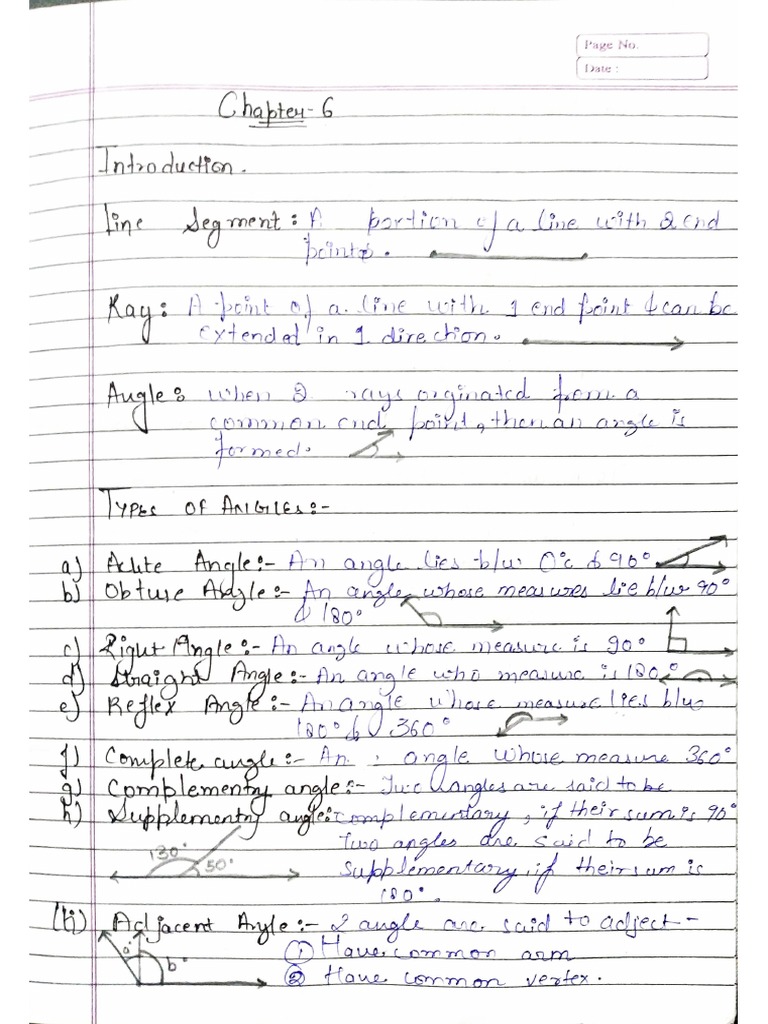 Page No.
Date :
Chapter-6
Introduction.
Line Segment: A portion of a line with 2 end
points.
Ray: A point of a line with 1 end point & can be
extended in 1 direction.
Angle: when 2 rays orginated from a
common end point, then an angle is
formed.
TYPES OF ANGLES:-
a) Acute Angle:- An angle lies b/w 0° & 90°
b) Obtuse Angle:- An angle whose measures lie b/w 90°
& 180°
c) Right Angle:- An angle whose measure is 90°
d) Straight Angle:- An angle who measure is 180°
e) Reflex Angle:- An angle whose measure lies b/w
180° & 360°
f) Complete angle:- An angle whose measure 360°
g) Complementry angle:- Two angles are said to be
h) Supplementry angle: complementary, if their sum is 90°
Two angles are said to be
130° 50°
supplementary, if their sum is
180°.
(h) Adjacent Angle:- 2 angle are said to adject-
① Have common arm
a° b°
② Have common vertex.